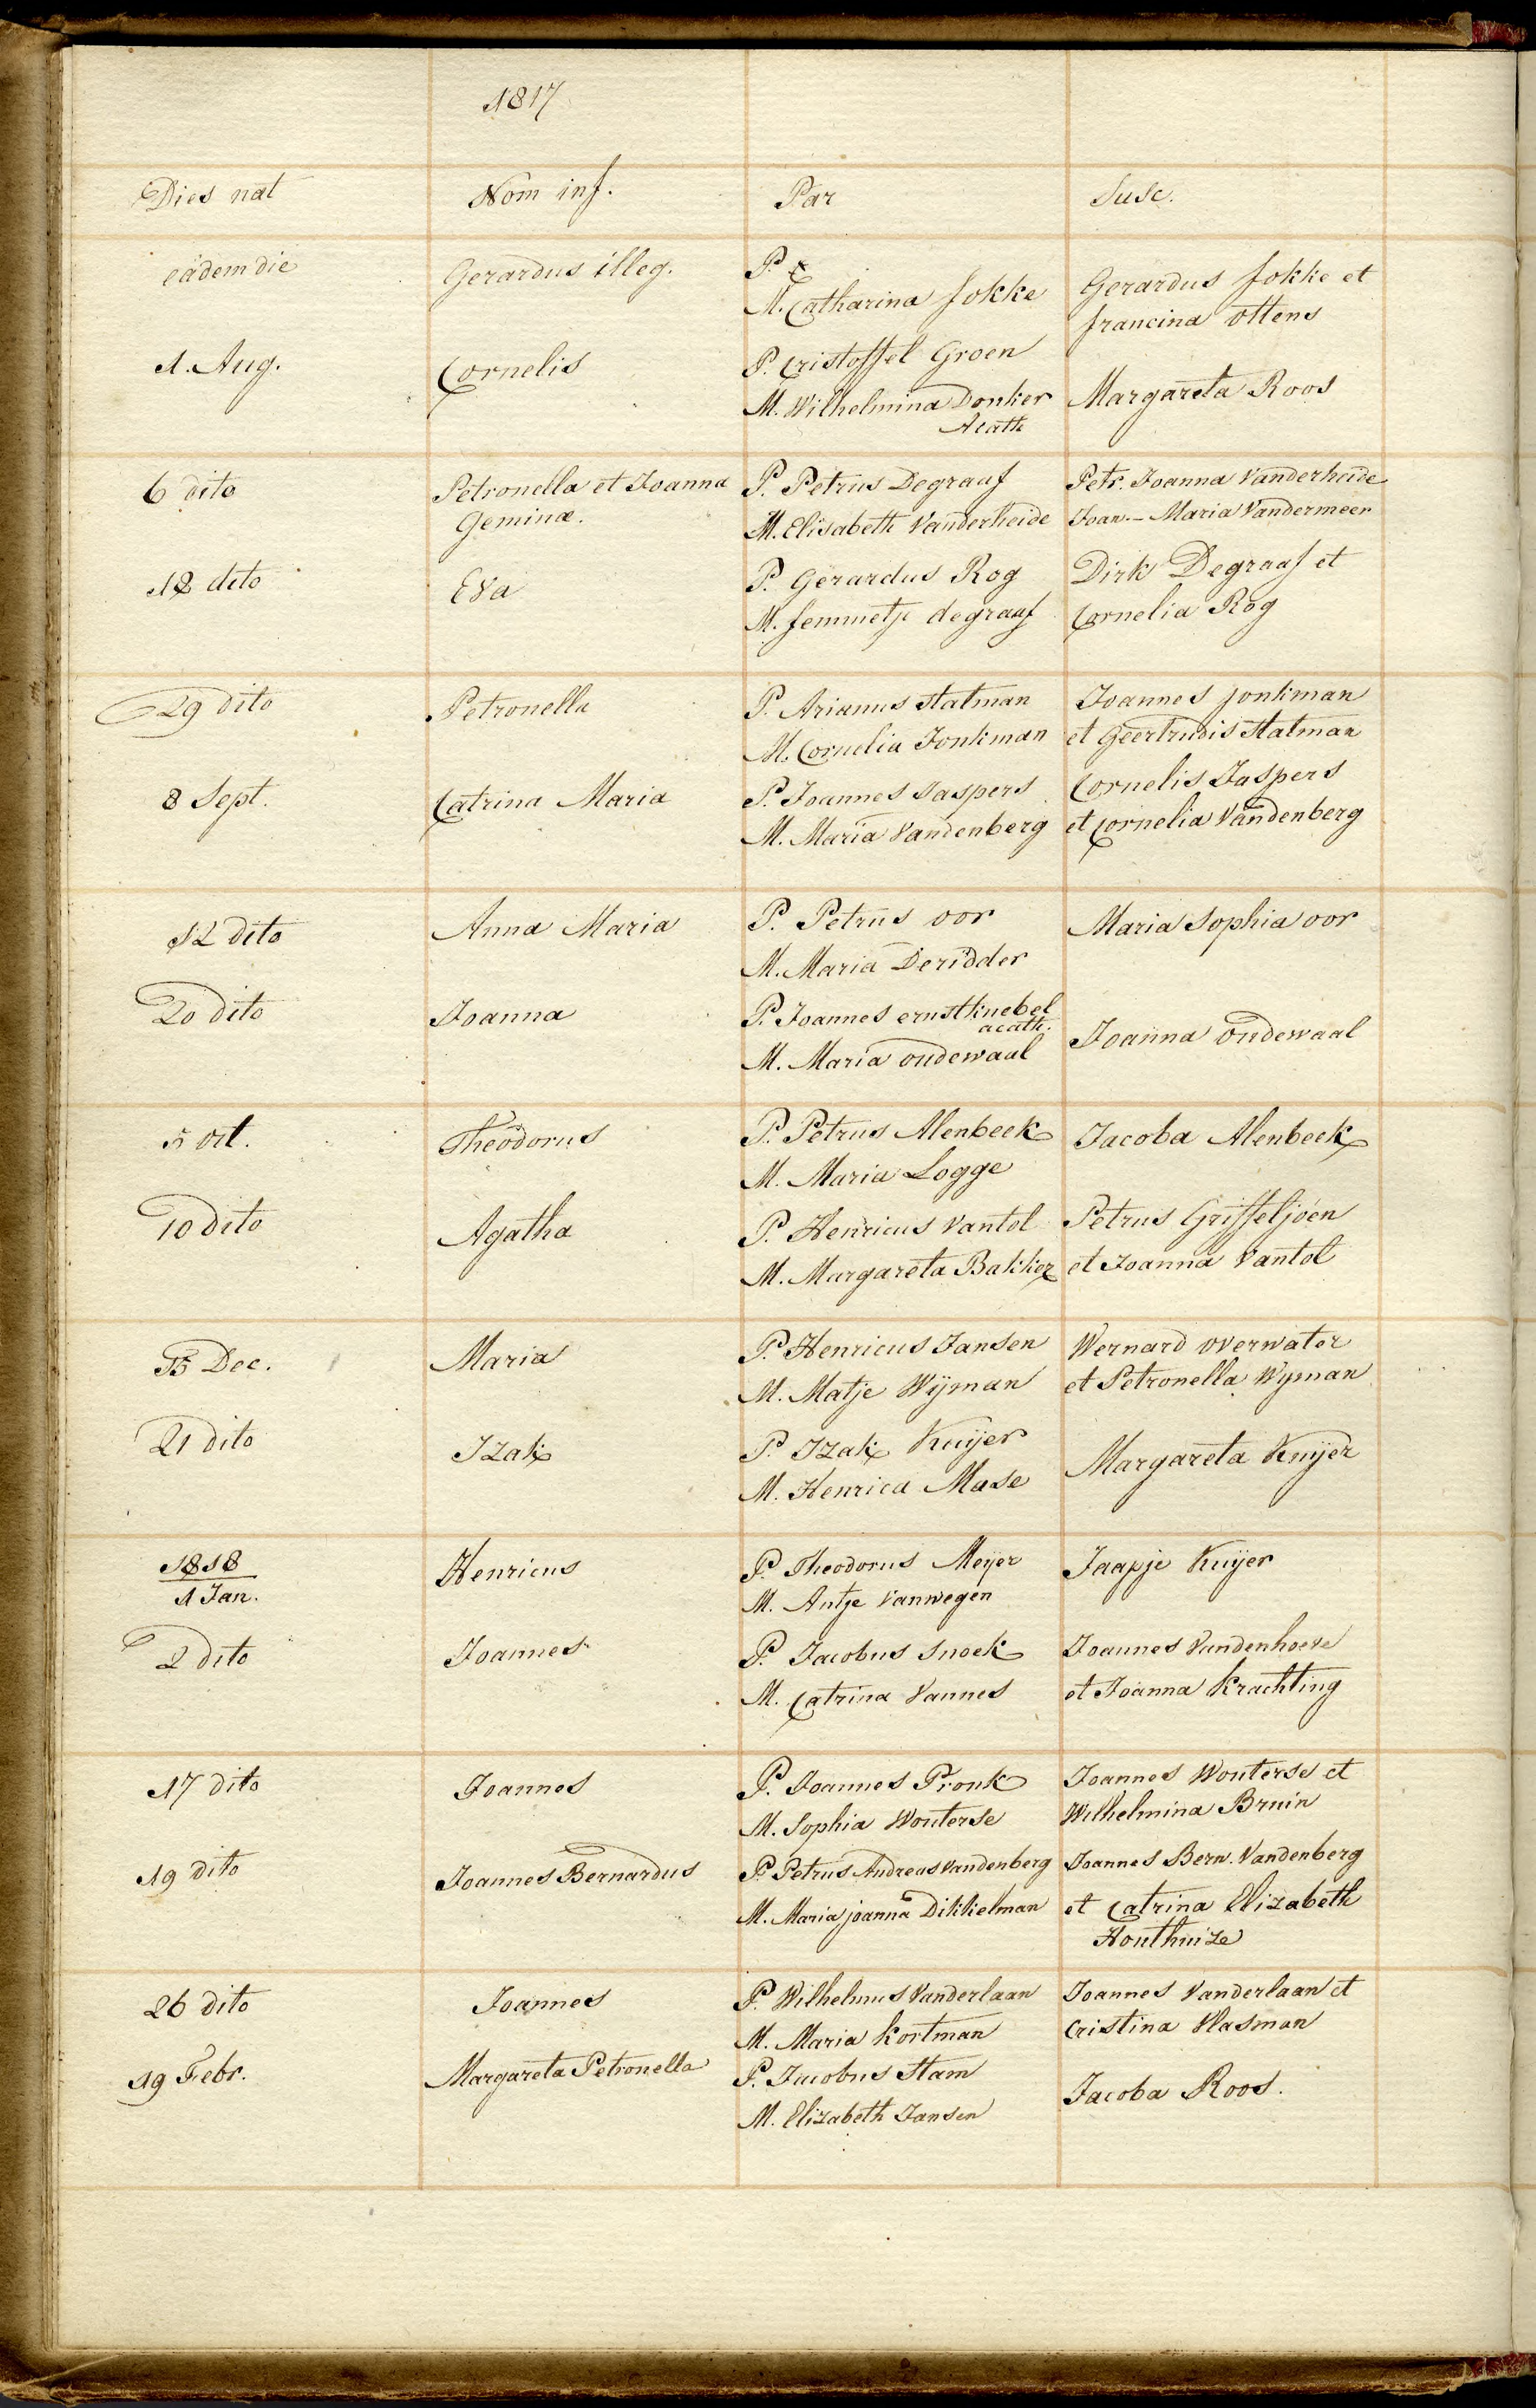 1817
Dies nat Nom inf. Par Susc.
eâdem die Gerardus illeg. P.
M. Catharina fokke Gerardus fokke et
francina ottens
1. Aug. Cornelis P. Cristoffel Groen
M. Wilhelmina Donker Margareta Roos
Acath
6 dito Petronella et Joanna P. Petrus Degraaf Petr. Joanna Vanderheide
Geminæ. M. Elisabeth Vanderheide Joan. - Maria Vandermeer
18 dito Eva P. Gerardus Rog Dirk Degraaf et
M. femmetje degraaf Cornelia Rog
29 dito Petronella P. Arianus statman Joannes jonkman
M. Cornelia Jonkman et Geertrudis statman
8 Sept. Catrina Maria P. Joannes Jaspers Cornelis Jaspers
M. Maria Vandenberg et Cornelia Vandenberg
12 dito Anna Maria P. Petrus oor Maria Sophia oor
M. Maria Deridder
20 dito Joanna P. Joannes ernst knebel
acath.
M. Maria oudewaal Joanna oudewaal
5 oct. Theodorus P. Petrus Alenbeek Jacoba Alenbeek
M. Maria Logge
10 dito Agatha P. Henricus Vantol Petrus Griffeljoen
M. Margareta Bakker et Joanna Vantol
Dec. Maria P. Henricus Jansen Wernard overwater
M. Matje Wijman et Petronella Wyman
21 dito Izak P. Izak Kuijer
M. Henrica Mase Margareta Kuijer
1818
1 Jan. Henricus P. Theodorus Meijer Jaapje Kuijer
M. Antje Vanwegen
2 dito Joannes P. Jacobus Snoek Joannes Vandenhoeve
M. Catrina Vannes et Joanna Krachting
17 dito Joannes P. Joannes Pronk Joannes Wouterse et
M. Sophia Wouterse Wilhelmina Bruin
19 dito Joannes Bernardus P. Petrus Andreas Vandenberg Joannes Bern. Vandenberg
M. Maria joanna Dikkelman et Catrina Elizabeth
Houthuize
26 dito Joannes P. Wilhelmus Vanderlaan Joannes Vanderlaan et
M. Maria Kortman Cristina Vlasman
19 Febr. Margareta Petronella P. Jacobus Stam
M. Elizabeth Jansen Jacoba Roos.